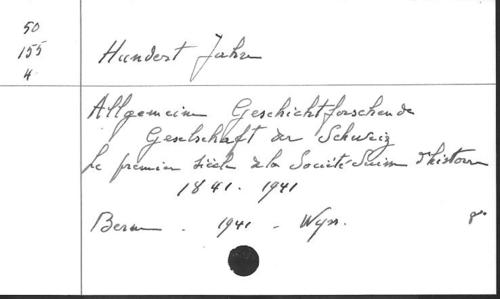 50
155
4
Hundert Jahre
Allgemeine Geschichtforschende
Gesellschaft der Schweiz
Le premier siècle de la Société Suisse d'histoire
1841 - 1941
Bern - 1941 - Wyss. 8°